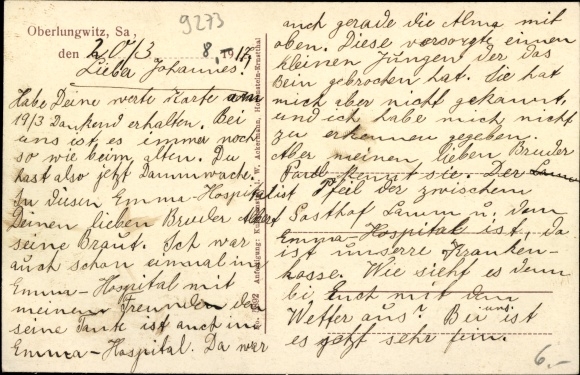 9273
Oberlungwitz, Sa.,
den 20/3 1917
Lieber Johannes!
Habe Deine werte Karte am
19/3 Dankend erhalten. Bei
uns ist es immer noch
so wie beim alten. Du
hast also jetzt Dammwache.
In diesen Emma-Hospital ist
Deinen lieben Bruder Albert
seine Braut. Ich war
auch schon einmal im
Emma-Hospital mit
meinem Freunden den
seine Tante ist auch im
Emma-Hospital. Da war
W. Ackermann, Hohenstein-Ernstthal
auch gerade die Alma mit
oben. Diese versorgte einen
kleinen Jungen der das
Bein gebrochen hat. Sie hat
mich aber nicht gekannt,
und ich habe mich nicht
zu erkennen gegeben.
Aber meinen lieben Bruder
Paul kennt sie. Der
Pfeil der zwischen
Gasthof Lamm u. dem
Emma-Hospital ist, da
ist unserre Kranken-
kasse. Wie sieht es denn
bei Euch mit dem
Wetter aus? Bei uns ist
es jetzt sehr fein.
6.-